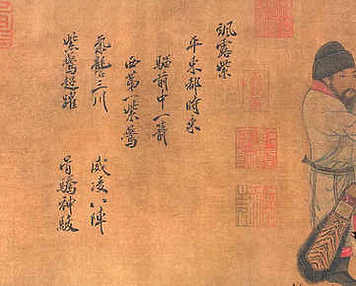 颯露紫
西第一紫鷰
騮前中一箭
平東都時乘
紫鷰超躍
骨騰神駿
氣讋三川
威凌八陣